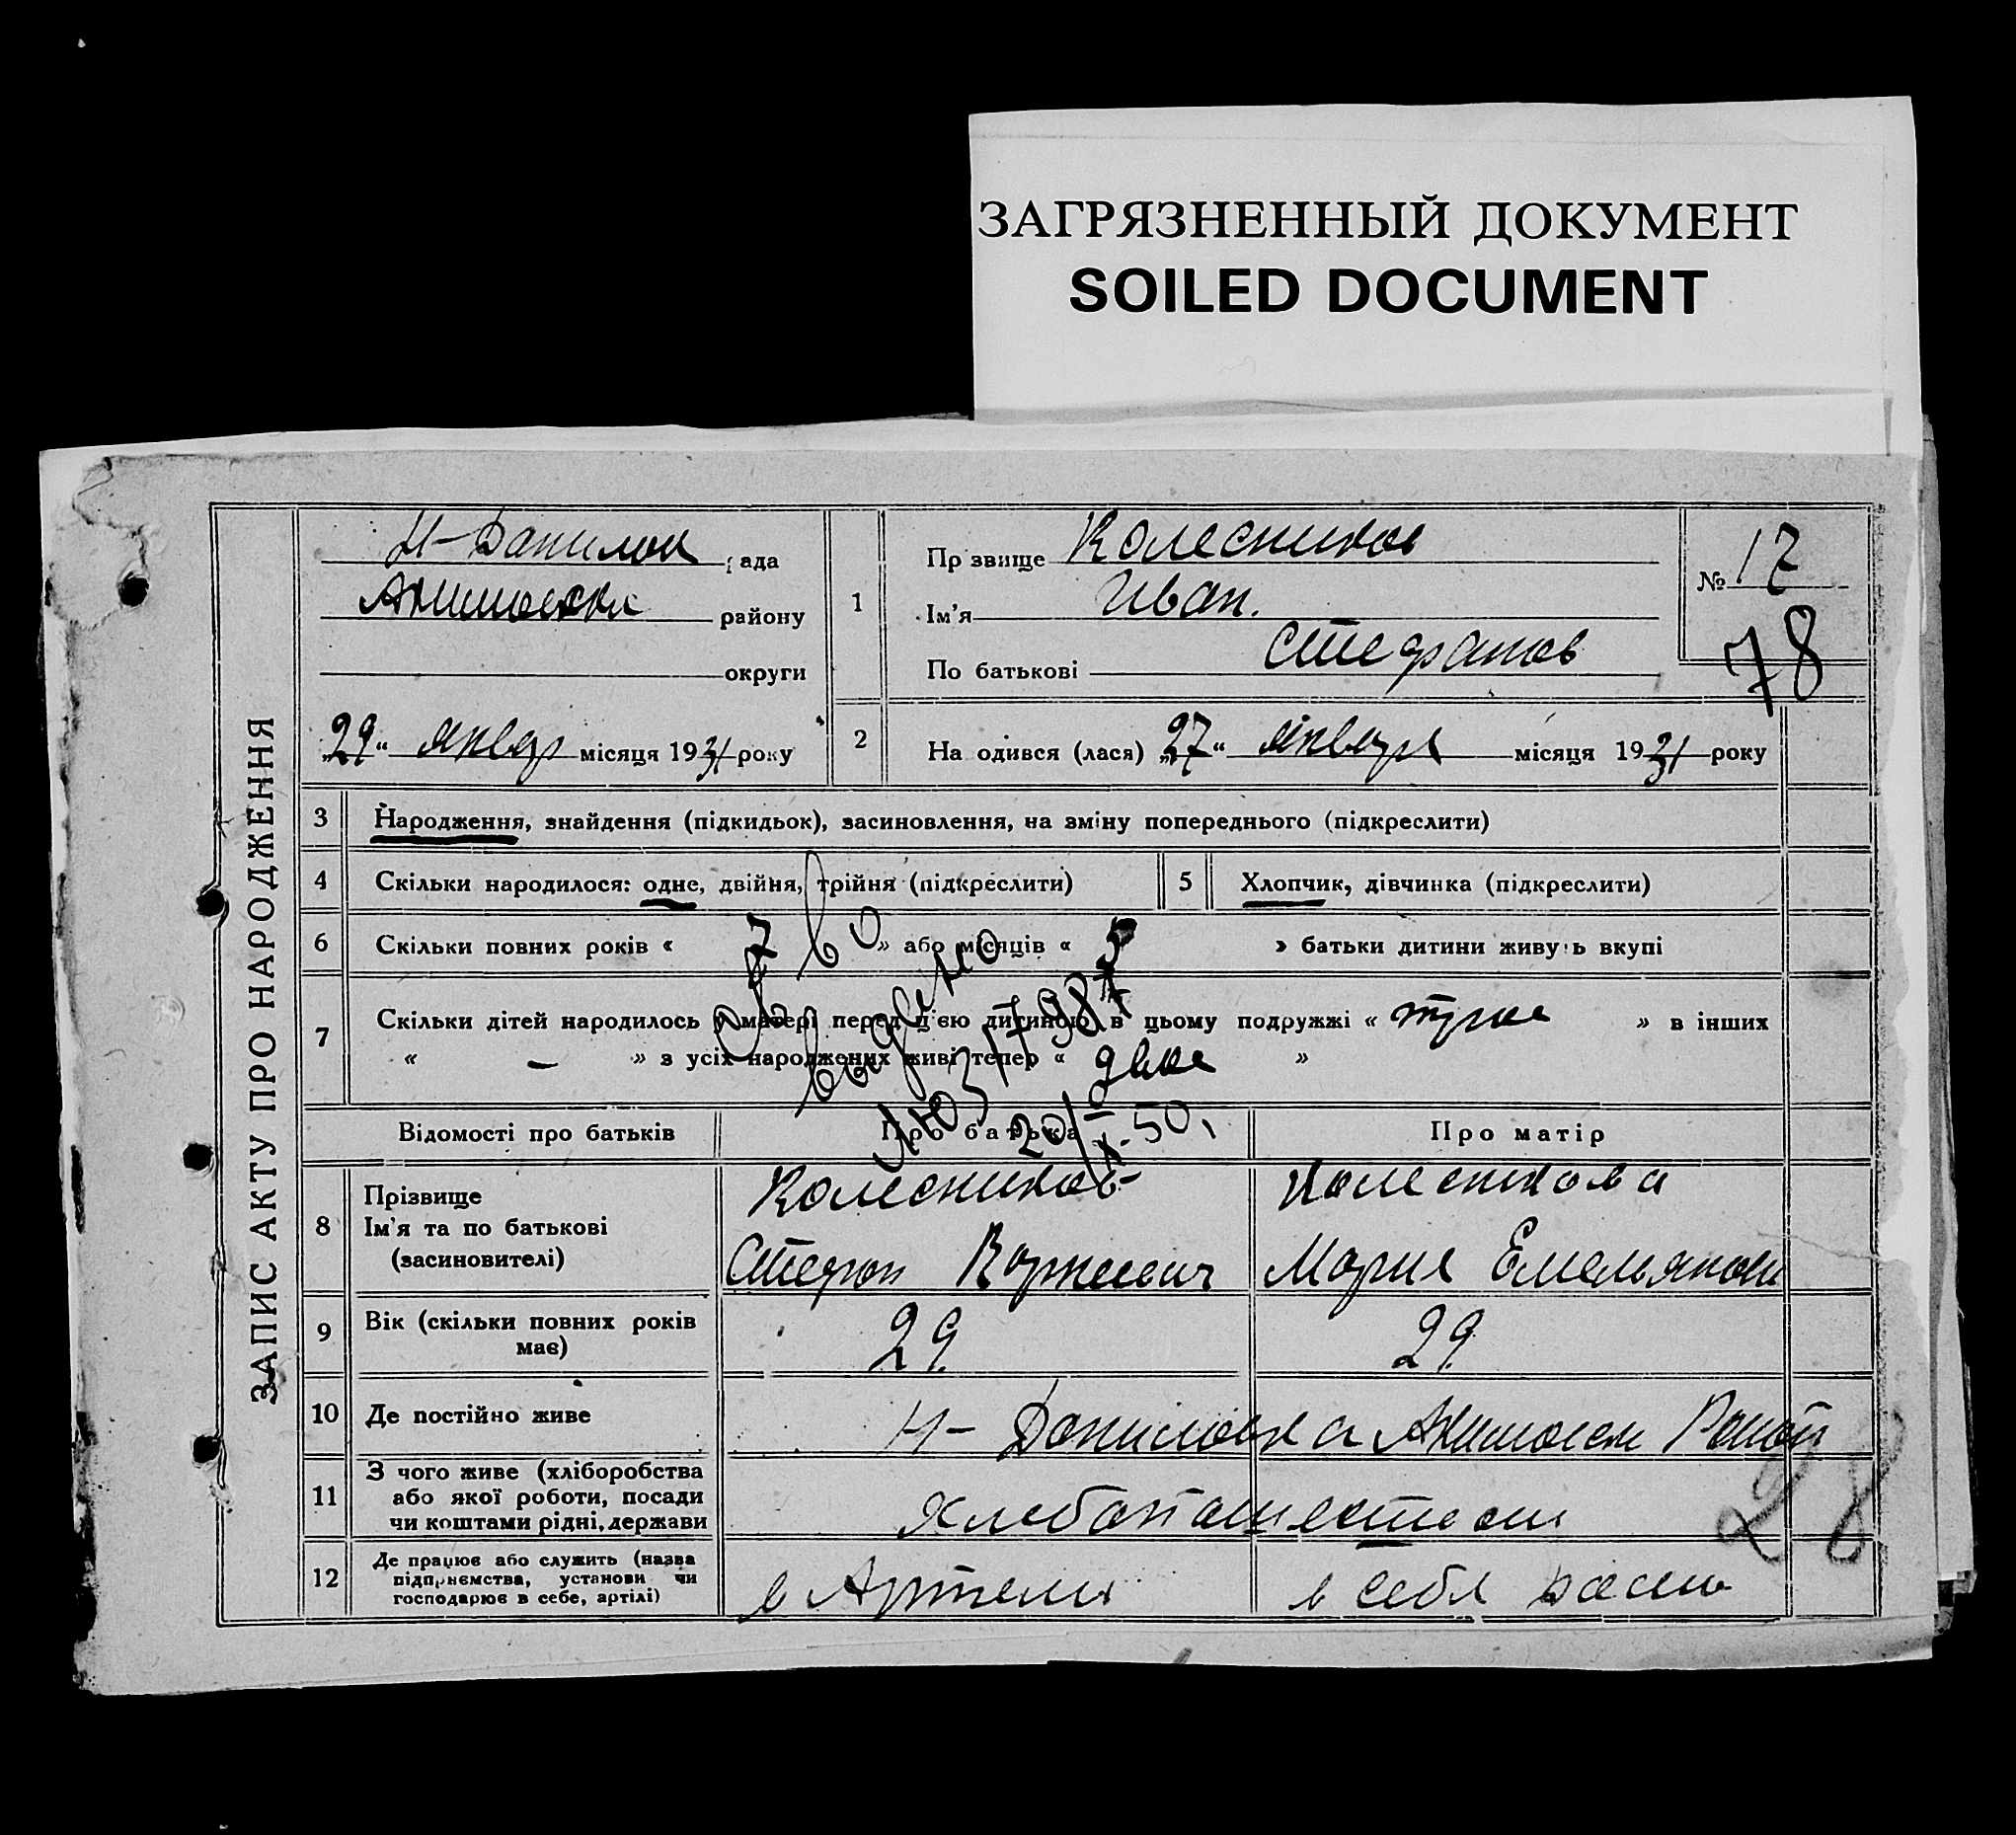 ЗАГРЯЗНЕННЫЙ ДОКУМЕНТ
SOILED DOCUMENT
ЗАПИС АКТУ ПРО НАРОДЖЕННЯ
Н-Данилов рада
району
округи
„29“ январ місяця 1931 року
1
Прізвище Колесников
Ім'я Иван.
По батькові Стефанов
№ 17
78
2
На одився (лася) „27“ января місяця 1931 року
3 Народження, знайдення (підкидьок), засиновлення, на зміну попереднього (підкреслити)
4 Скільки народилося: одне, двійня, трійня (підкреслити)
5 Хлопчик, дівчинка (підкреслити)
6 Скільки повних років « 7 » або місяців « » батьки дитини живуть вкупі
7 Скільки дітей народилось у матері перед цією дитиною в цьому подружжі « трое » в інших
« – » з усіх народжених живі тепер « двое »
Св во
выдано
20/X-50,
Відомості про батьків
Про батька
Про матір
8
Прізвище
Ім'я та по батькові
(засиновителі)
Колесников
Стефан
Колесникова
Мария Емельянов
9
Вік (скільки повних років
має)
29
29
10 Де постійно живе
Н-Даниловка Район
11
З чого живе (хліборобства
або якої роботи, посади
чи коштами рідні, держави
12
Де працює або служить (назва
підприємства, установи чи
господарює в себе, артілі)
в Артели
в себя
28